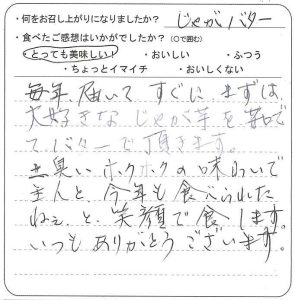 ・何をお召し上がりになりましたか? じゃがバター
・食べたご感想はいかがでしたか?(○で囲む)
・とっても美味しい! ・おいしい ・ふつう
・ちょっとイマイチ ・おいしくない
毎年届いて すぐに、まずは
大好きな じゃが芋を 茹で
て バターで 頂きます。
土臭い ホクホクの 味わいで
主人と、今年も 食べられた
ねぇ、と 笑顔で 食します。
いつも ありがとう ございます。